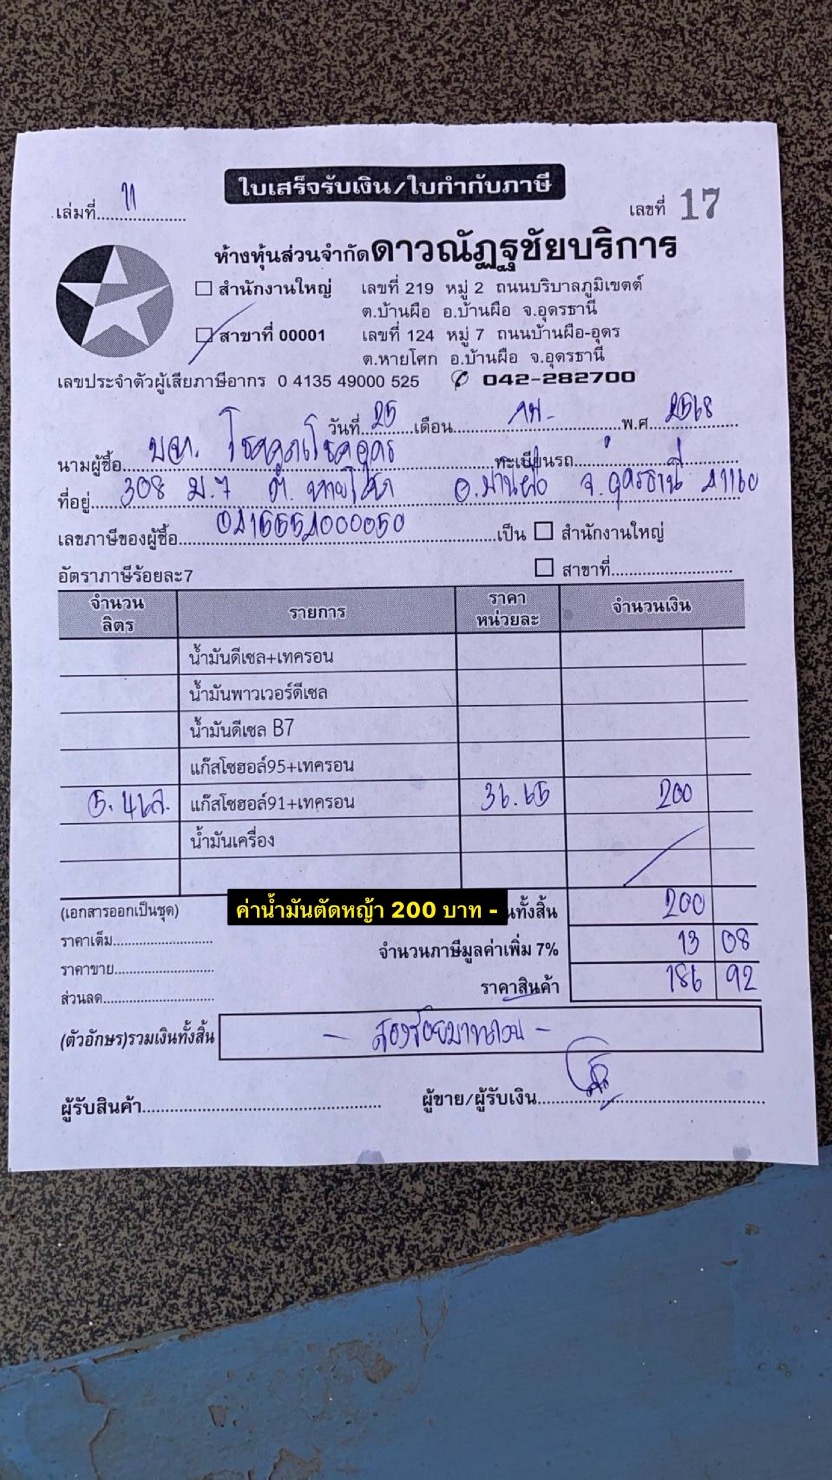 ใบเสร็จรับเงิน/ใบกำกับภาษี
เล่มที่ 11
เลขที่ 17
ห้างหุ้นส่วนจำกัดดาวณัฏฐชัยบริการ
สำนักงานใหญ่ เลขที่ 219 หมู่ 2 ถนนบริบาลภูมิเขตต์
ต.บ้านผือ อ.บ้านผือ จ.อุดรธานี
สาขาที่ 00001 เลขที่ 124 หมู่ 7 ถนนบ้านผือ-อุดร
ต.หายโศก อ.บ้านผือ จ.อุดรธานี
เลขประจำตัวผู้เสียภาษีอากร 0 4135 49000 525 042-282700
วันที่ 25 เดือน กพ. พ.ศ 2568
นามผู้ซื้อ บจก. ทะเบียนรถ
ที่อยู่ 308 ม.7 ต. หายโศก อ.บ้านผือ จ.อุดรธานี 41160
เลขภาษีของผู้ซื้อ 0415554000050 เป็น สำนักงานใหญ่
อัตราภาษีร้อยละ7 สาขาที่
จำนวนลิตร รายการ ราคาหน่วยละ จำนวนเงิน
น้ำมันดีเซล+เทครอน
น้ำมันพาวเวอร์ดีเซล
น้ำมันดีเซล B7
แก๊สโซฮอล์95+เทครอน
5.46ล. แก๊สโซฮอล์91+เทครอน 36.65 200
น้ำมันเครื่อง
(เอกสารออกเป็นชุด) ค่าน้ำมันตัดหญ้า 200 บาท - นทั้งสิ้น 200
ราคาเต็ม
จำนวนภาษีมูลค่าเพิ่ม 7% 13 08
ราคาขาย
ราคาสินค้า 186 92
ส่วนลด
(ตัวอักษร)รวมเงินทั้งสิ้น - สองร้อยบาทถ้วน -
ผู้รับสินค้า ผู้ขาย/ผู้รับเงิน